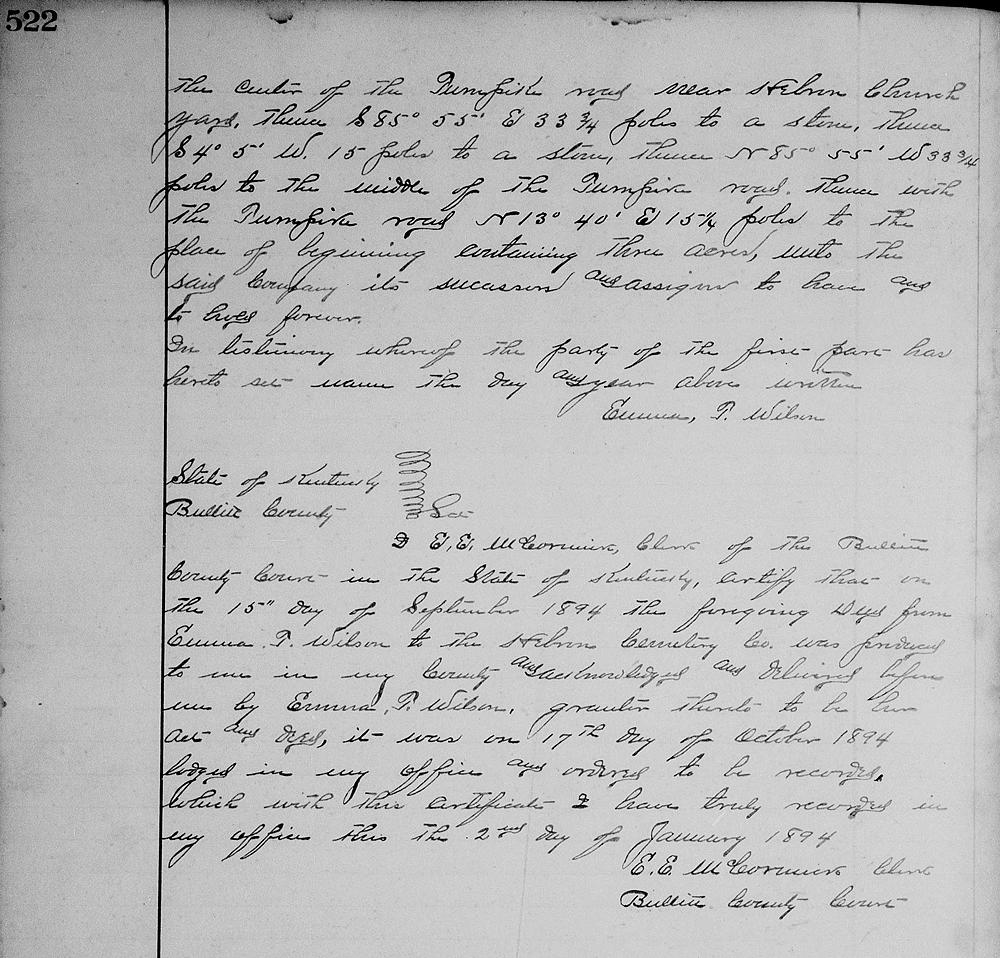 522
the center of the Turnpike road near Hebron Church
yard, thence S 85° 55' E 33 3/4 poles to a stone, thence
S 4° 5' W. 15 poles to a stone, thence N 85° 55' W 33 3/4
poles to the middle of the Turnpike road. thence with
the Turnpike road N 13° 40' E 15 1/4 poles to the
place of beginning containing three acres, unto the
said Company its successors and assigns to have and
to hold forever.
In testimony whereof the party of the first part has
hereto set name the day and year above written
Emma, T. Wilson
State of Kentucky
Bullitt County Sct
I E.E. McCormick, Clerk of the Bullitt
County Court in the State of Kentucky, certify that on
the 15" day of September 1894 the foregoing Deed from
Emma. T. Wilson to the Hebron Cemetery Co. was produced
to me in my County and acknowledged and delivered before
me by Emma, T. Wilson, grantor thereto to be her
act and deed, it was on 17th day of October 1894
lodged in my office and ordered to be recorded,
which with this certificate I have truly recorded in
my office this the 2nd day of January 1894
E.E. McCormick Clerk
Bullitt County Court